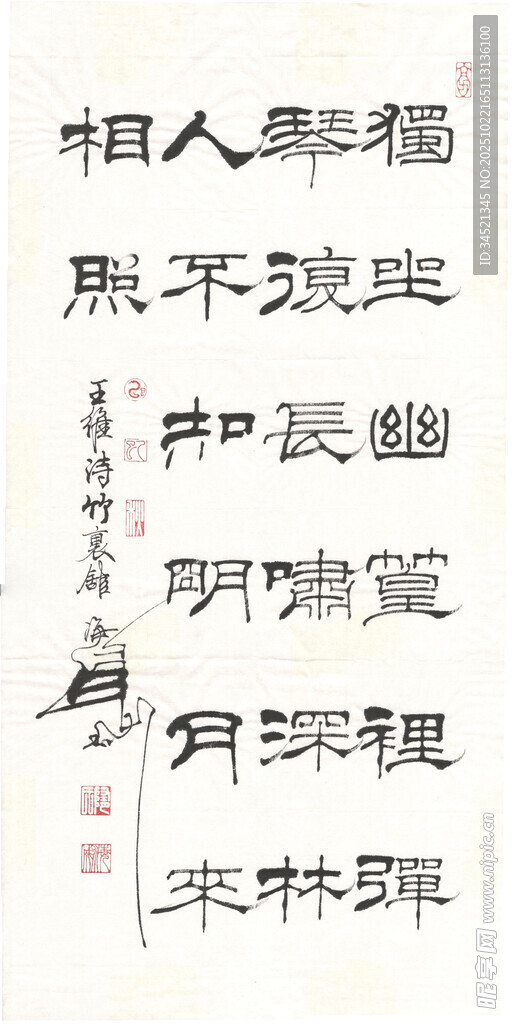 獨坐幽篁裡彈
琴復長嘯深林
人不知明月來
相照
王維詩竹裏館 海
ID:34521345 NO:20251022165113136100
昵享网 www.nipic.cn